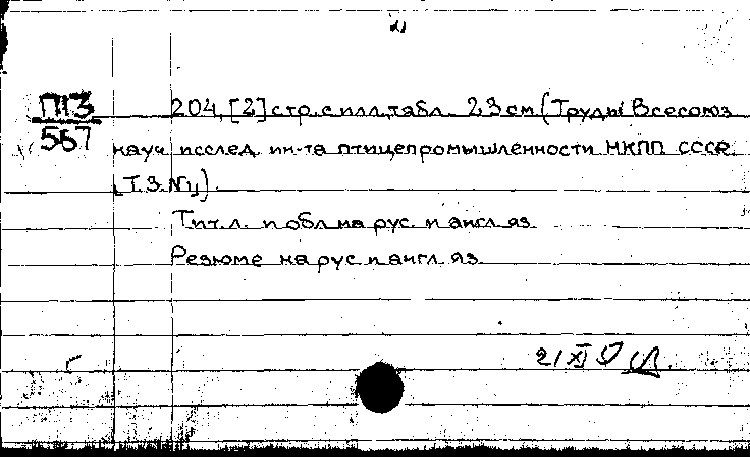 П13
567
204, [2] стр. с илл., табл. 23 см (Труды Всесоюз
науч исслед. ин-та птицепромышленности НКПП СССР.
[Т. 3. №4]).
Тит. л. и обл на рус. и англ яз
Резюме на рус и англ. яз.
21 XI